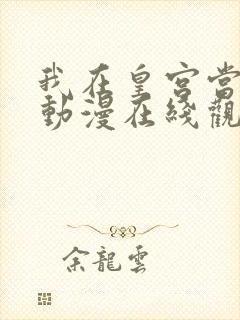 我在皇宮當
動漫在綫觀
余龍雲